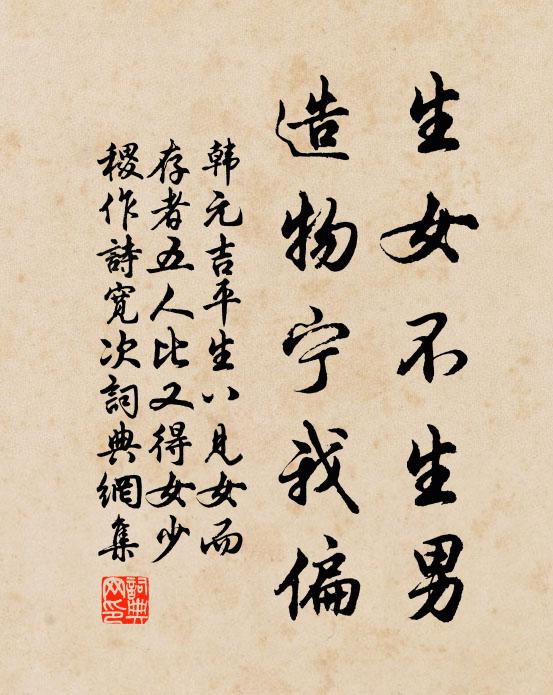 生女不生男
造物宁我偏
韩元吉平生八见女而
存者五人比又得女少
稷作詩寛次詞典網集
詞典网印